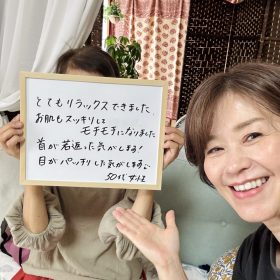 とてもリラックスできました、
お肌もスッキリして
モチモチになりました
首が若返った気がします!
目がパッチリした気がします
50代 女性